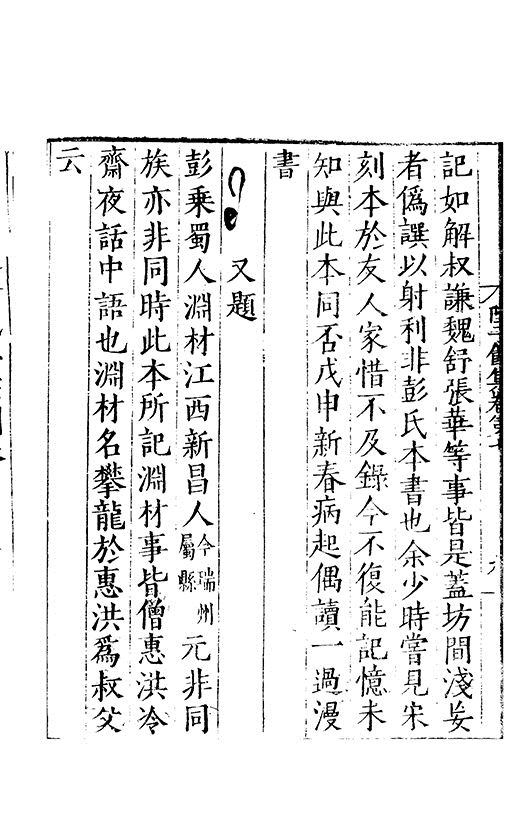 記如解叔謙魏舒張華等事皆是蓋坊間淺妄
者僞譔以射利非彭氏本書也余少時嘗見宋
刻本於友人家惜不及錄今不復能記憶未
知與此本同否戊申新春病起偶讀一過漫
書
又題
彭乘蜀人淵材江西新昌人今瑞州屬縣元非同
族亦非同時此本所記淵材事皆僧惠洪冷
齋夜話中語也淵材名攀龍於惠洪爲叔父
云